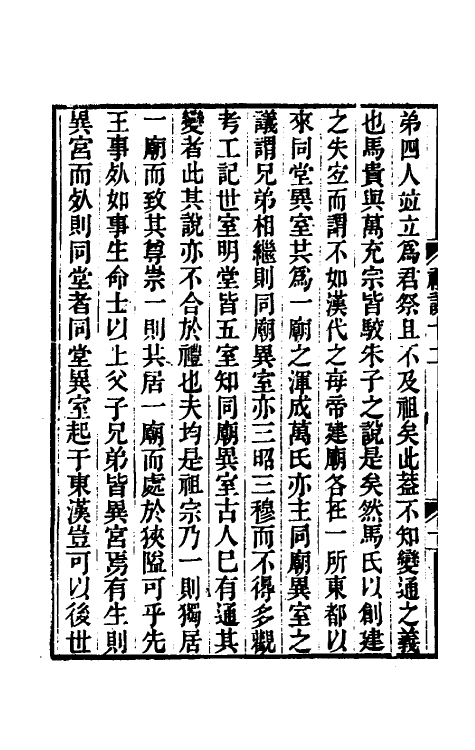 弟四人竝立爲君祭且不及祖矣此葢不知變通之義
也馬貴與萬充宗皆駁朱子之說是矣然馬氏以創建
之失宜而謂不如漢代之每帝建廟各在一所東都以
來同堂異室共爲一廟之渾成萬氏亦主同廟異室之
議謂兄弟相繼則同廟異室亦三昭三穆而不得多觀
考工記世室明堂皆五室知同廟異室古人巳有通其
變者此其說亦不合於禮也夫均是祖宗乃一則獨居
一廟而致其尊崇一則共居一廟而處於狹隘可乎先
王事死如事生命士以上父子兄弟皆異宮焉有生則
異宮而死則同堂者同堂異室起于東漢豈可以後世